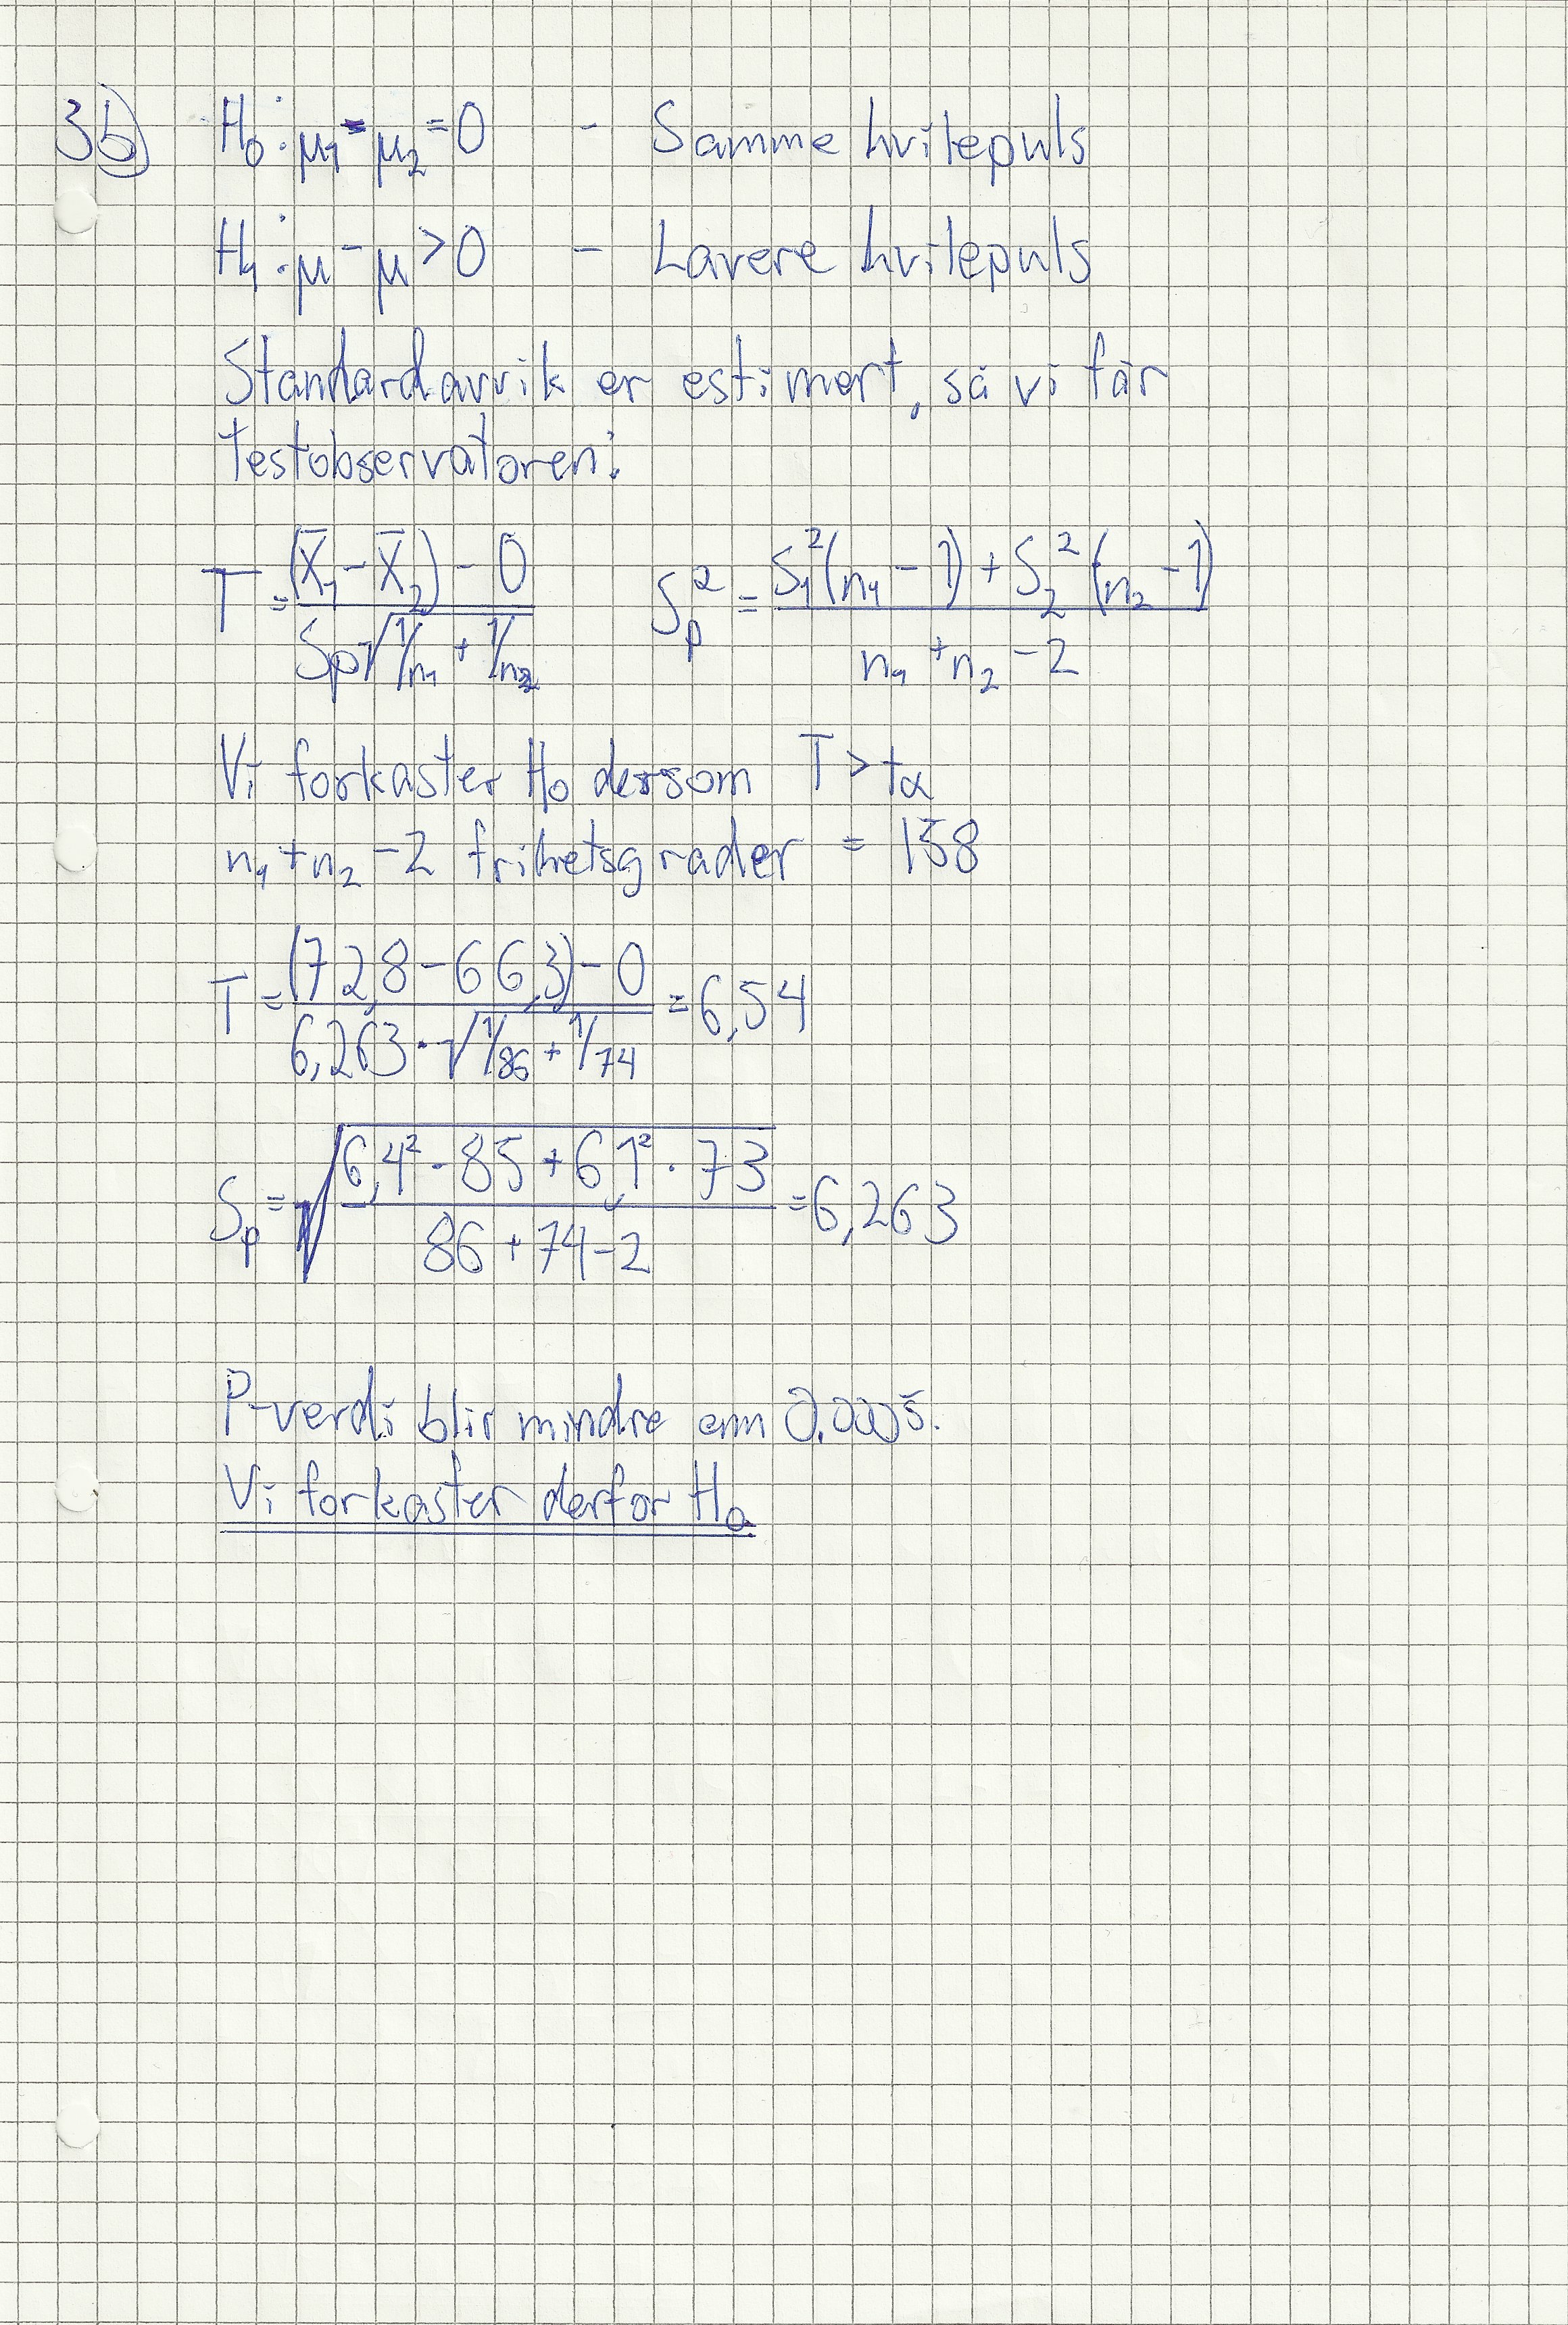 3b) H₀: μ₁ - μ₂ = 0 - Samme hvilepuls
H₁: μ - μ > 0 - Lavere hvilepuls
Standardavvik er estimert, så vi får
testobservatoren:
T = ((X̄₁ - X̄₂) - 0) / (Sp√(1/n₁ + 1/n₂)) Sp² = (S₁²(n₁ - 1) + S₂²(n₂ - 1)) / (n₁ + n₂ - 2)
Vi forkaster H₀ dersom T > tα
n₁ + n₂ - 2 frihetsgrader = 158
T = ((72,8 - 66,3) - 0) / (6,263 · √(1/86 + 1/74)) = 6,54
Sp = √((6,4² · 85 + 6,1² · 73) / (86 + 74 - 2)) = 6,263
P-verdi blir mindre enn 0.0005.
Vi forkaster derfor H₀